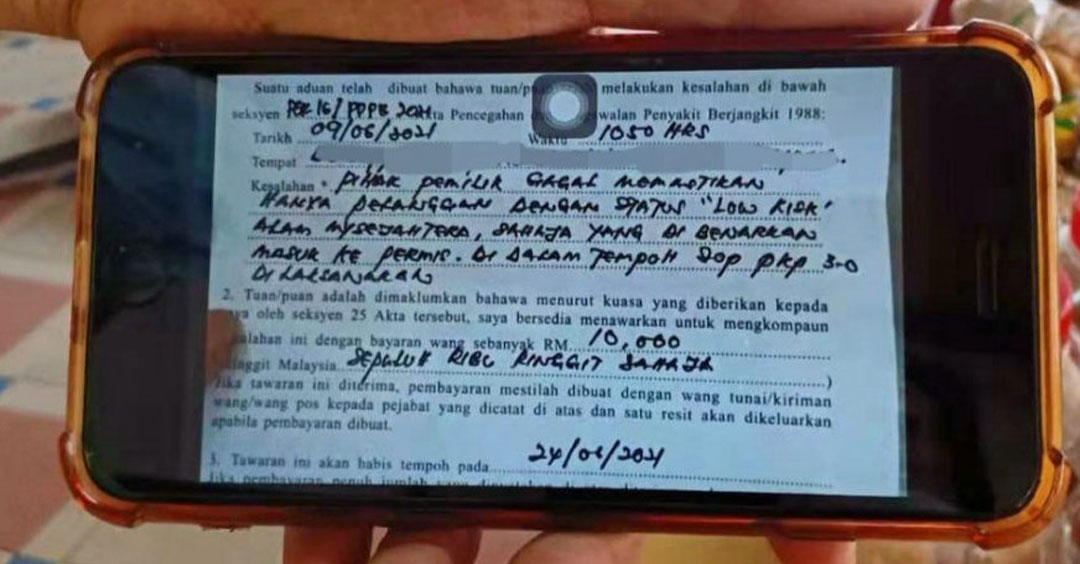 Suatu aduan telah dibuat bahawa tuan/p melakukan kesalahan di bawah
seksyen PER 16/ PPPB 2021 ta Pencegahan walan Penyakit Berjangkit 1988:
Tarikh 09/06/2021 Waktu 1050 HRS
Tempat
Kesalahan PIHAK PEMILIK GAGAL MEMASTIKAN
HANYA PELANGGAN DENGAN STATUS "LOW RISK"
ALAM MYSEJAHTERA, SAHAJA YANG DI BENARKAN
MASUK KE PERMIS. DI DALAM TEMPOH SOP PKP 3-0
DI LAKSANAKAN
2. Tuan/puan adalah dimaklumkan bahawa menurut kuasa yang diberikan kepada
ya oleh seksyen 25 Akta tersebut, saya bersedia menawarkan untuk mengkompaun
alahan ini dengan bayaran wang sebanyak RM 10,000
inggit Malaysia SEPULUH RIBU RINGGIT SAHAJA )
Jika tawaran ini diterima, pembayaran mestilah dibuat dengan wang tunai/kiriman
wang/wang pos kepada pejabat yang dicatat di atas dan satu resit akan dikeluarkan
apabila pembayaran dibuat.
3. Tawaran ini akan habis tempoh pada 24/06/2021